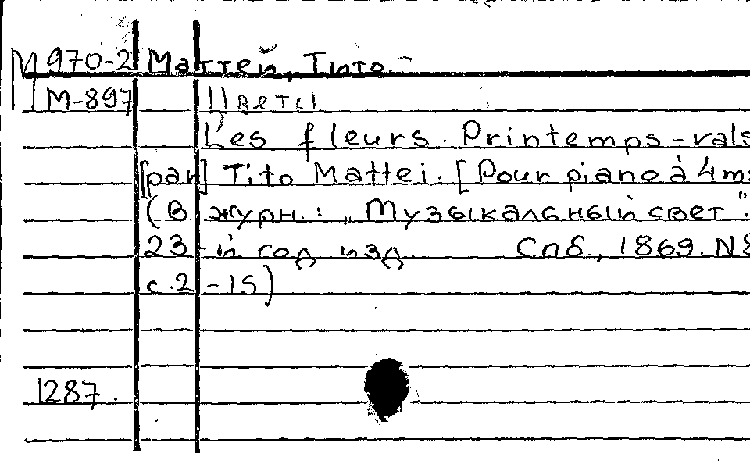 М 970-2 Маттей, Тито.-
М-897 Цветы
Les fleurs. Printemps-vals
[par] Tito Mattei. [Pour piano à 4 ms
(В журн.: „Музыкальный свет".
23-й год изд. Спб, 1869. N8
с. 2-15)
1287.